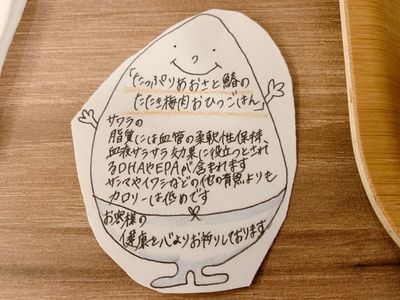 「たっぷりあおさと鰆の
たたき梅肉おひつごはん
サワラの
脂質には血管の柔軟性保持、
血液サラサラ効果に役立つとされ
るDHAやEPAが含まれます
サンマやイワシなどの他の青魚よりも
カロリーは低めです
お客様の
健康を心よりお祈りしております